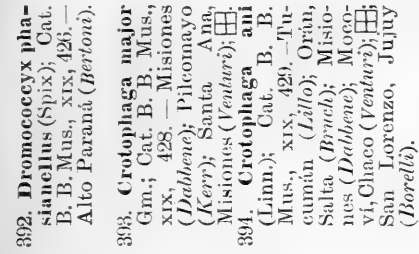 392. Dromococcyx pha-
sianellus (Spix); Cat.
B. B. Mus., xix, 426.—
Alto Paraná (Bertoni).
393. Crotophaga major
Gm.; Cat. B. B. Mus.,
xix, 428. — Misiones
(Dabbene); Pilcomayo
(Kerr); Santa Ana,
Misiones (Venturi); ⊞.
394. Crotophaga ani
(Linn.); Cat. B. B.
Mus., xix, 429. — Tu-
cumán (Lillo); Orán,
Salta (Bruch); Misio-
nes (Dabbene); Moco-
ví, Chaco (Venturi); ⊞;
San Lorenzo, Jujuy
(Borelli).